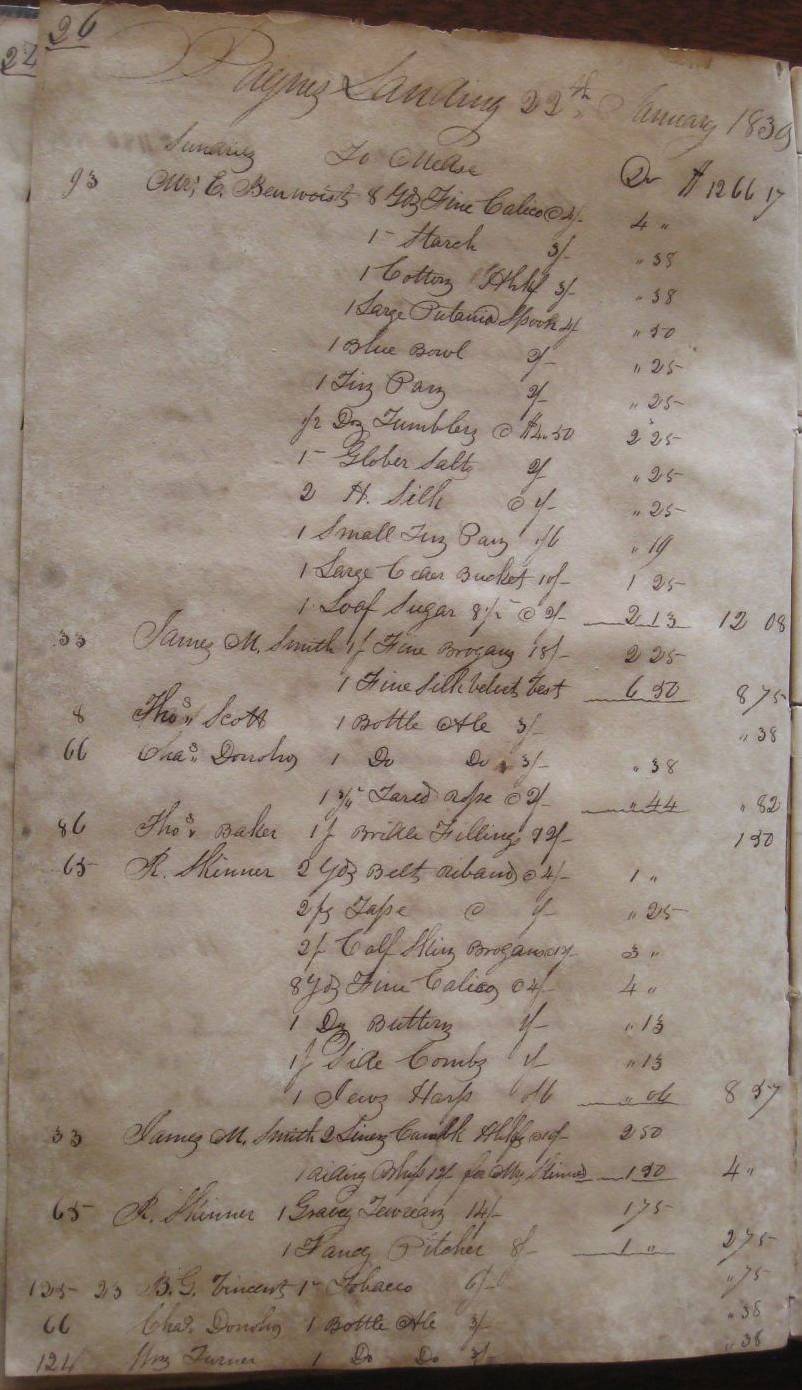 26
Paynes Landing 22th January 1839
Sundries To Mdse Dr $1266 17
93 Mrs, E. Benwoist 8 Yds Fine Calico @ 4/- 4 "
1 - Starch 3/- " 38
1 Cotton Hhkf 3/- " 38
1 Large Putania Spoon 4/ " 50
1 Blue Bowl 2/- " 25
1 Tin Pan 2/- " 25
1/2 Doz Tumblers @ $4.50 2 25
1 - Glober Salts 2/ " 25
2 H. Silk @ 1/- " 25
1 Small Tin Pan 1/6 " 19
1 Large Cedar Bucket 10/- 1 25
1 Loaf Sugar 8 1/2 @ 2/- 2 13 12 08
33 James M. Smith 1 p Fine Brogans 18/- 2 25
1 Fine Silk velvet Vest 6 50 8 75
8 Thos. Scott 1 Bottle Ale 3/- " 38
66 Chas. Donoho 1 Do Do 3/- " 38
1 3/4 Tared rope @ 2/- " 44 " 82
86 Thos. Baker 1 p Bridle Fillings 12/- 1 50
65 R. Skinner 2 Yds Belt riband @ 4/- 1 "
2 ps Tape @ 1/- " 25
2 p Calf Skin Brogans 12/- 3 "
8 Yds Fine Calico @ 4/- 4 "
1 Dz Buttons 1/- " 13
1 p Side Combs 1/- " 13
1 Jews Harp /6 " 06 8 57
33 James M. Smith 2 Linen Cambk Hhkfs @ 10/- 2 50
1 riding Whip 12/- for My 1 50 4 "
65 R. Skinner 1 Gravy Tewrean 14/- 1 75
1 Fancy Pitcher 8/- 1 " 2 75
125 23 B. G. Vincent 1 - Tobacco 6/- " 75
66 Chas. Donoho 1 Bottle Ale 3/- " 38
124 Wm Turner 1 Do Do 3/- " 38